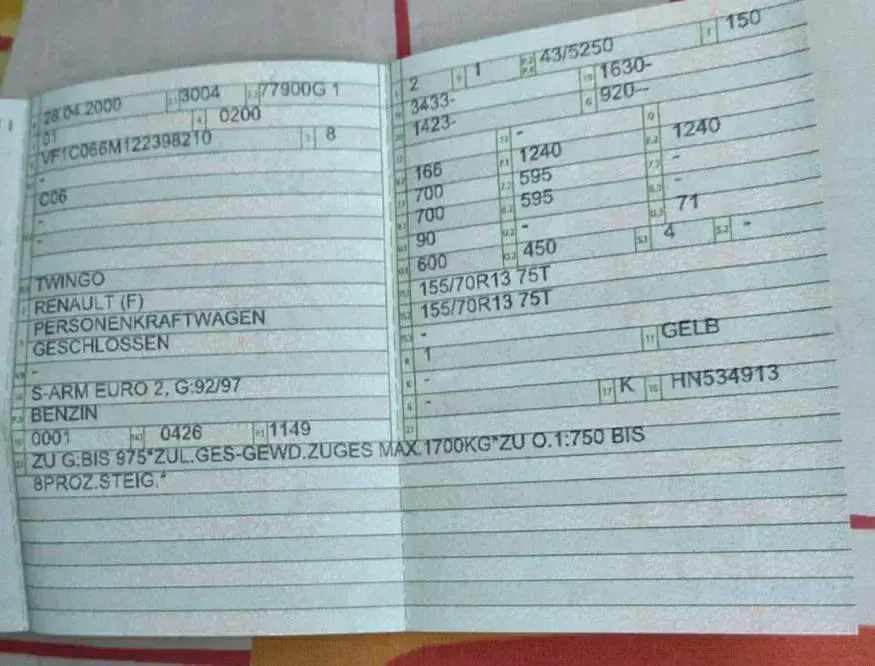 28.04.2000 2.1 3004 2.2 77900G 1
01 4 0200
VF1C066M122398210 3 8
-
C06
-
-
TWINGO
RENAULT (F)
PERSONENKRAFTWAGEN
GESCHLOSSEN
-
S-ARM EURO 2, G:92/97
BENZIN
0001 0426 P.1 1149
ZU G:BIS 975*ZUL.GES-GEWD.ZUGES MAX.1700KG*ZU O.1:750 BIS
8PROZ.STEIG.*
2 9 1 P.2 P.4 43/5250 T 150
3433- 19 1630-
1423- G 920--
13 - Q
166 F.1 1240 F.2 1240
700 7.2 595 7.3 -
700 8.2 595 8.3 -
90 U.2 - U.3 71
600 O.2 450 S.1 4 S.2 -
155/70R13 75T
155/70R13 75T
-
R 1 11 GELB
K -
6 - 17 K 16 HN534913
21